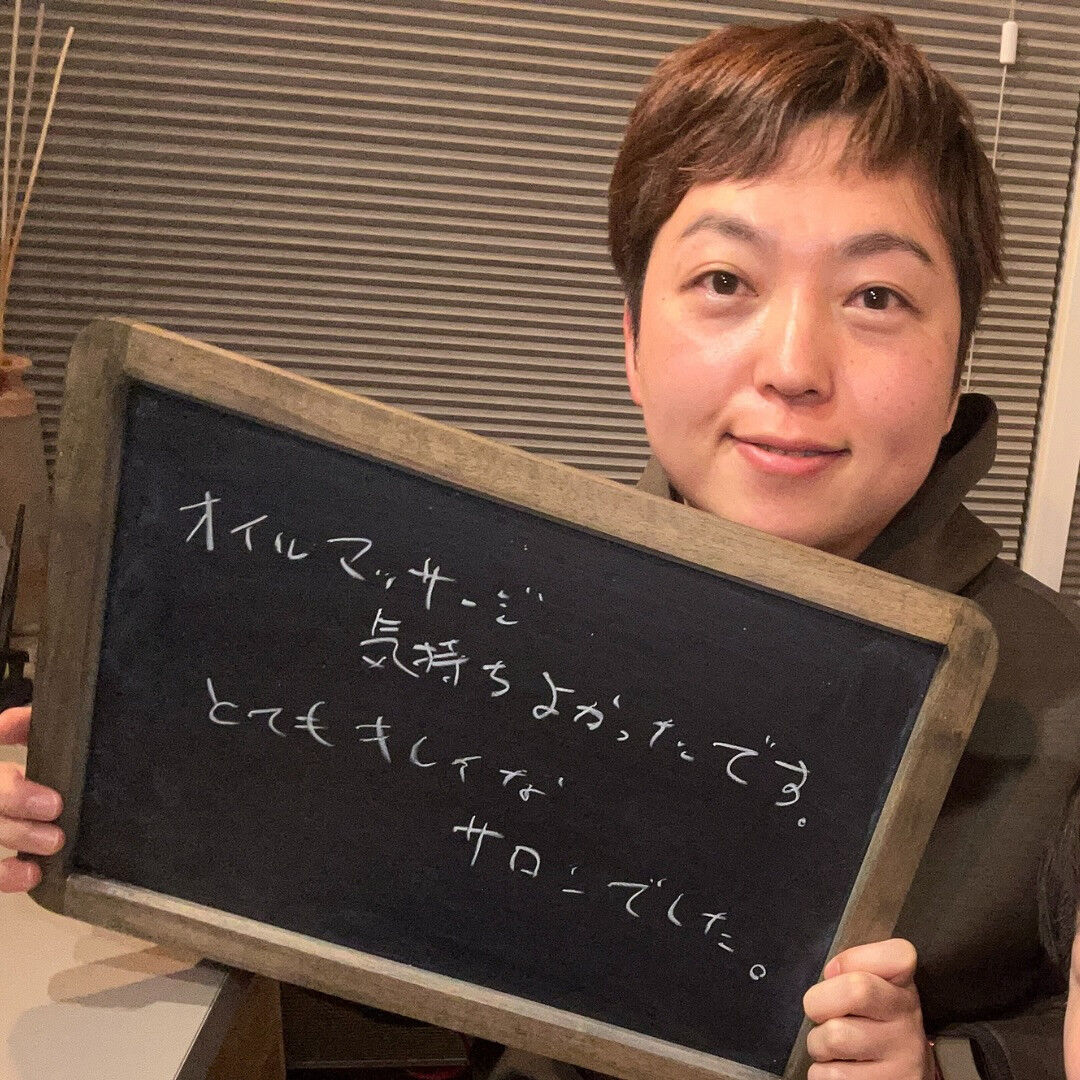 オイルマッサージ
気持ちよかったです。
とてもキレイな
サロンでした。